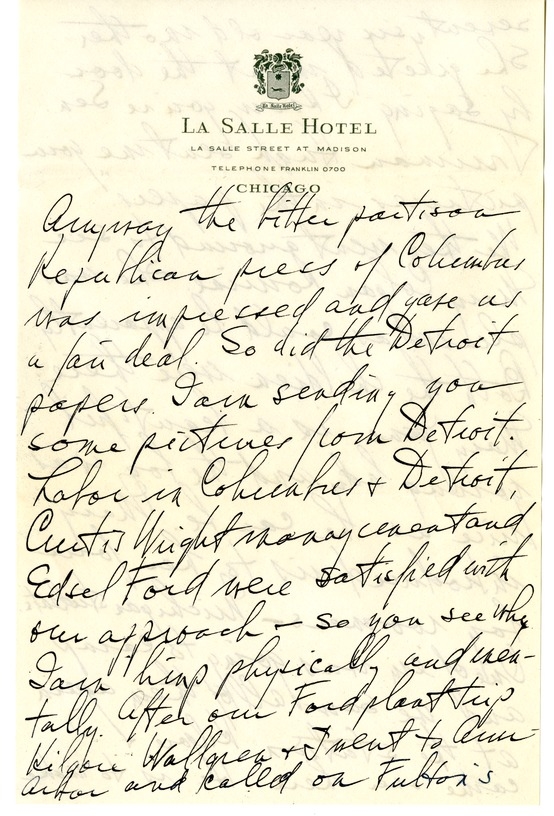 LA SALLE HOTEL
LA SALLE STREET AT MADISON
TELEPHONE FRANKLIN 0700
CHICAGO
Anyway the bitter partisan
Republican press of Columbus
was impressed and gave us
a fair deal. So did the Detroit
papers. I am sending you
some pictures from Detroit.
Labor in Columbus & Detroit,
Curtis Wright management and
Edsel Ford were satisfied with
our approach - so you see why
I am limp physically and men-
tally. After our Ford plant trip
Kilgore Wallgren & I went to Ann
Arbor and called on Fulton's